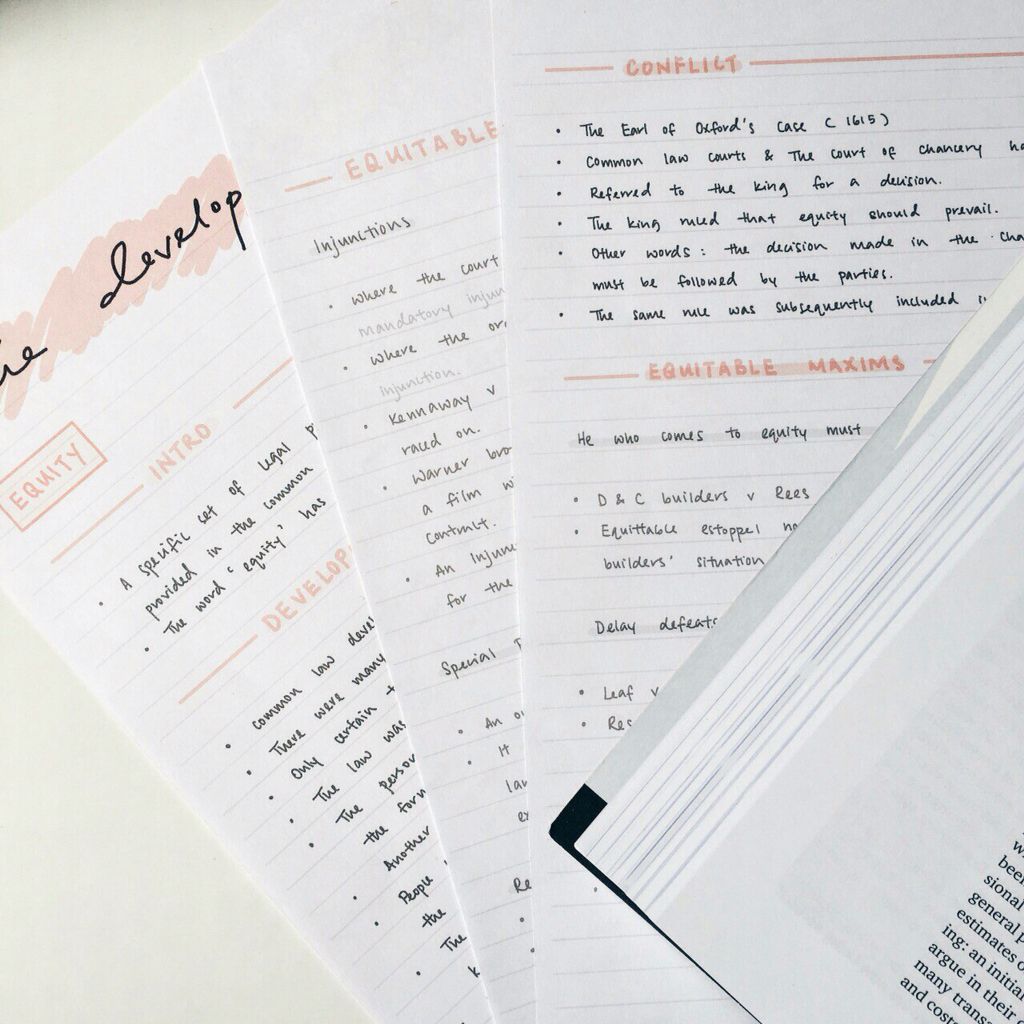 develop
EQUITY
INTRO
A specific set of legal
provided in the common
The word 'equity' has
DEVELOP
common law devel
There were many
Only certain
The law was
The person
the form
Another
People
the
The
EQUITABLE
Injunctions
where the court
mandatory injun
where the
injunction.
Kennaway v
raced on.
Warner bro
a film
contract.
An Injunc
for the
Special
An
It
law
Re
CONFLICT
The Earl of Oxford's case (1615)
Common law courts & The court of chancery ha
Referred to the king for a decision.
The king ruled that equity should prevail.
Other words: the decision made in the cha
must be followed by the parties.
The same rule was subsequently included
EQUITABLE MAXIMS
He who comes to equity must
D & C builders v Rees
Equittable estoppel
builders' situation
Delay defeats
Leaf v
Res
been
sional
general p
estimates o
ing: an initia
argue in their
many trans
and cost